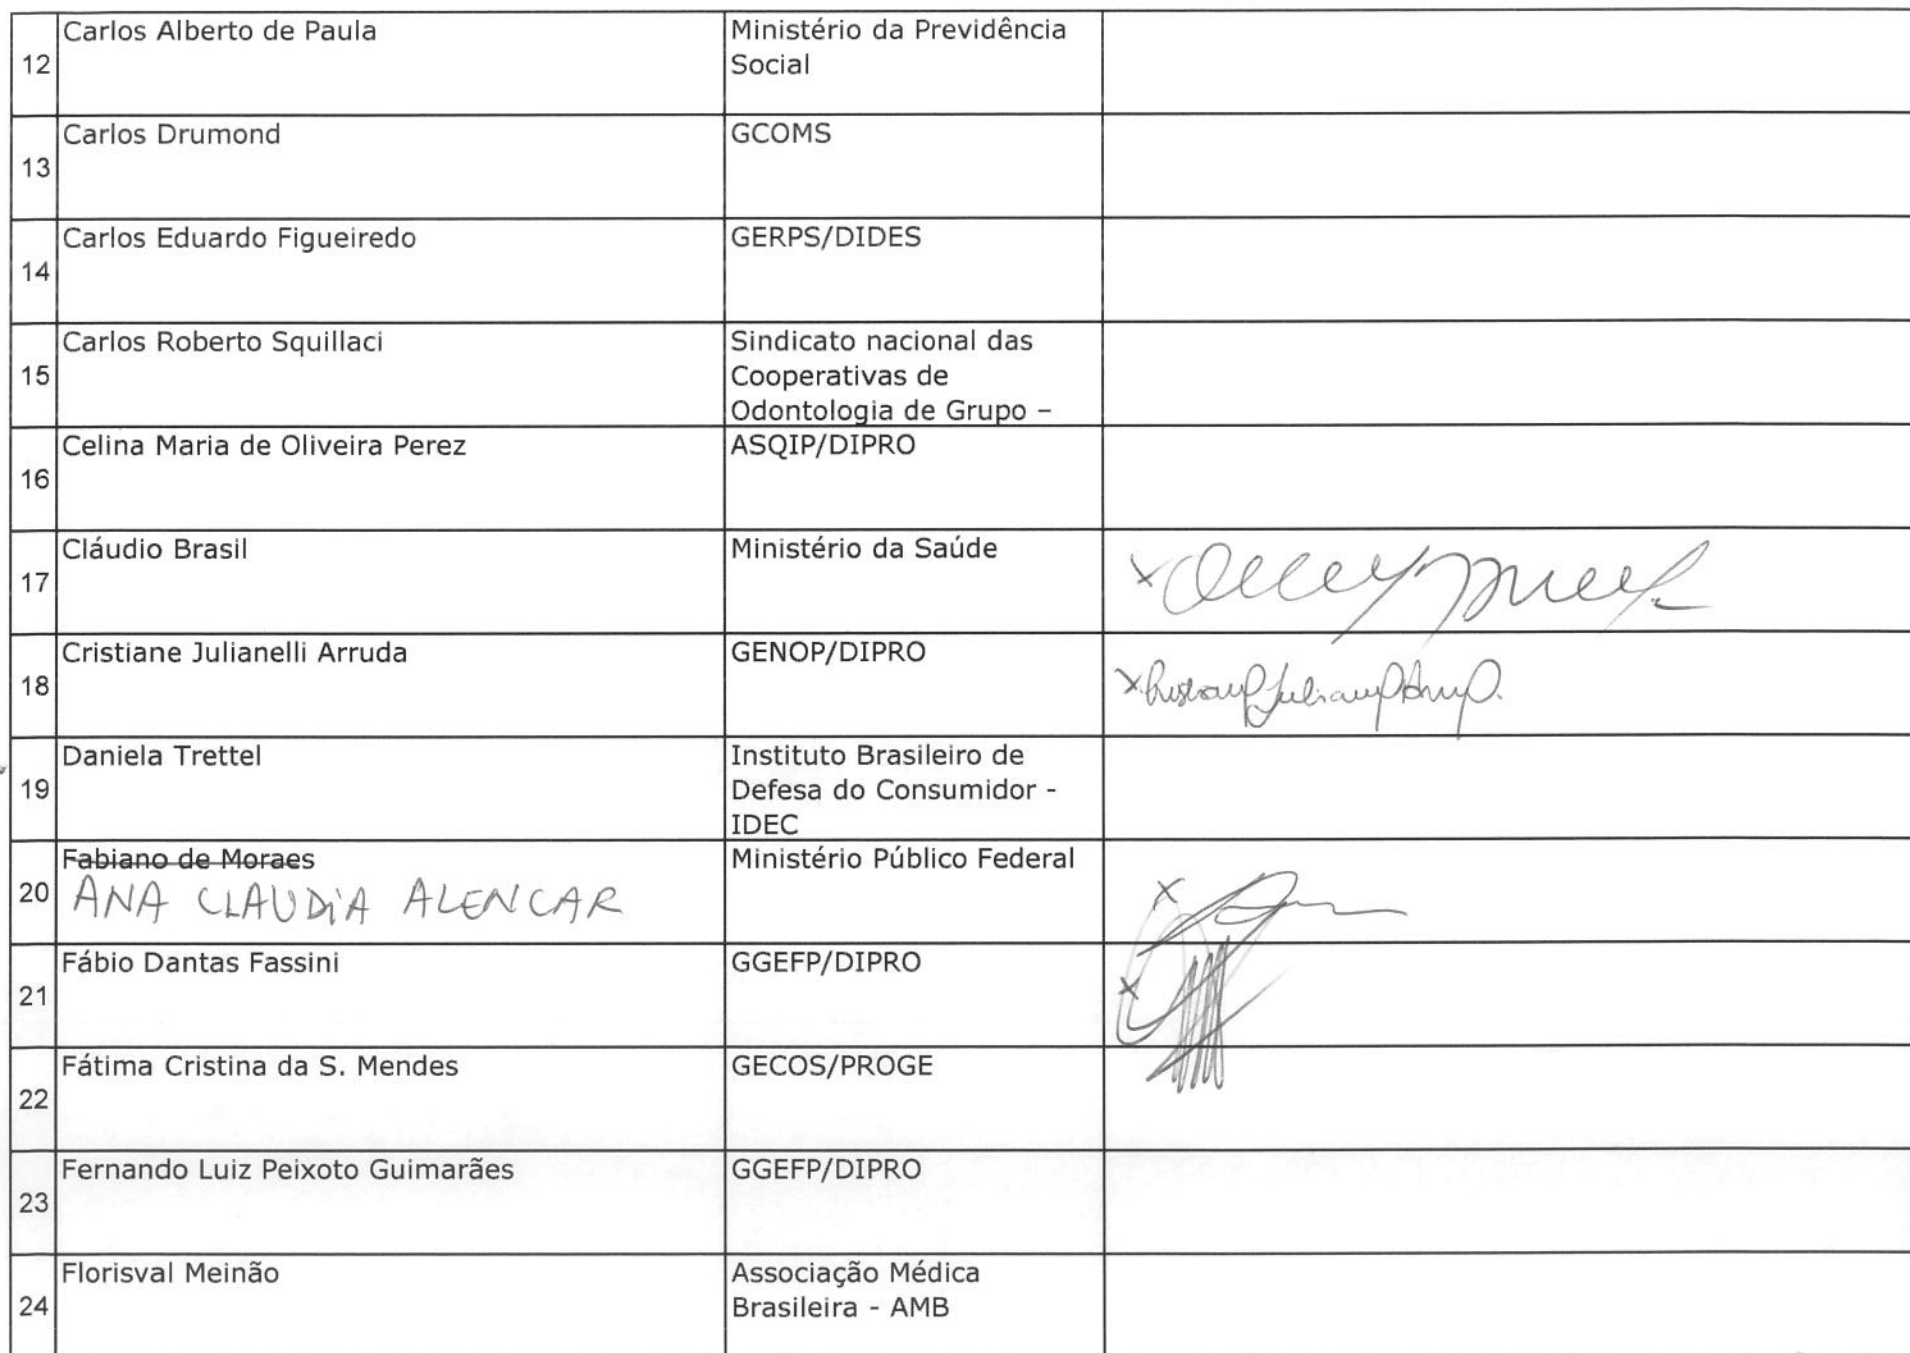 12
Carlos Alberto de Paula
Ministério da Previdência
Social
13
Carlos Drumond
GCOMS
14
Carlos Eduardo Figueiredo
GERPS/DIDES
15
Carlos Roberto Squillaci
Sindicato nacional das
Cooperativas de
Odontologia de Grupo –
16
Celina Maria de Oliveira Perez
ASQIP/DIPRO
17
Cláudio Brasil
Ministério da Saúde
x
18
Cristiane Julianelli Arruda
GENOP/DIPRO
x
19
Daniela Trettel
Instituto Brasileiro de
Defesa do Consumidor -
IDEC
20
Fabiano de Moraes
ANA CLAUDIA ALENCAR
Ministério Público Federal
x
21
Fábio Dantas Fassini
GGEFP/DIPRO
x
22
Fátima Cristina da S. Mendes
GECOS/PROGE
23
Fernando Luiz Peixoto Guimarães
GGEFP/DIPRO
24
Florisval Meinão
Associação Médica
Brasileira - AMB